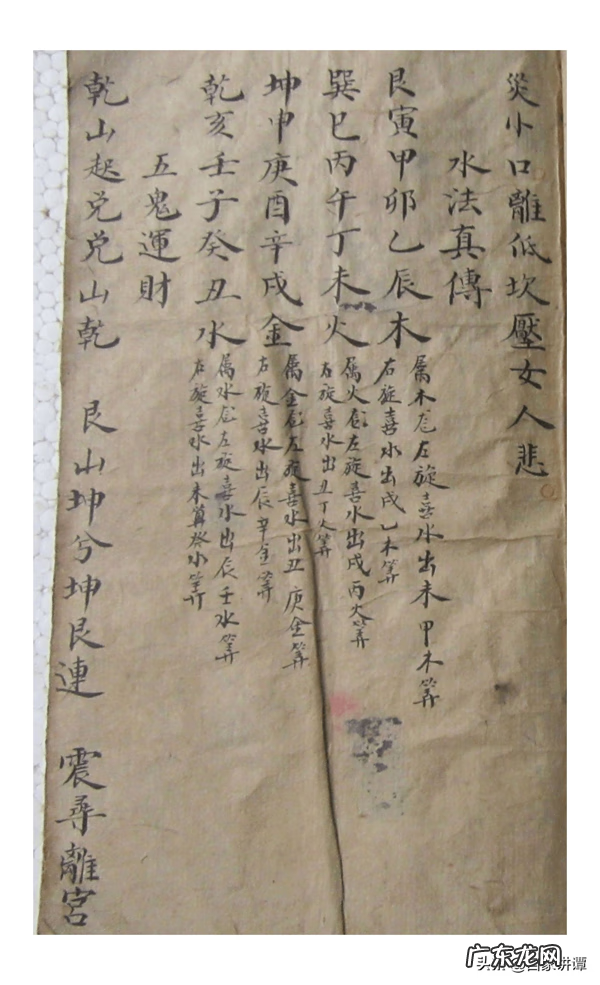 災小口離低坎壓女人悲
水法真傳
艮寅甲卯乙辰木
属木龙左旋喜水出未甲木筭
右旋喜水出戌乙木筭
巽巳丙午丁未火
属火龙左旋喜水出戌丙火筭
右旋喜水出丑丁火筭
坤申庚酉辛戌金
属金龙左旋喜水出丑庚金筭
右旋喜水出辰辛金筭
乾亥壬子癸丑水
属水龙左旋喜水出辰壬水筭
右旋喜水出未筭癸水筭
五鬼運財
乾山起兑兑山乾 艮山坤兮坤艮連 震尋離宮
广东龙网
讲谭